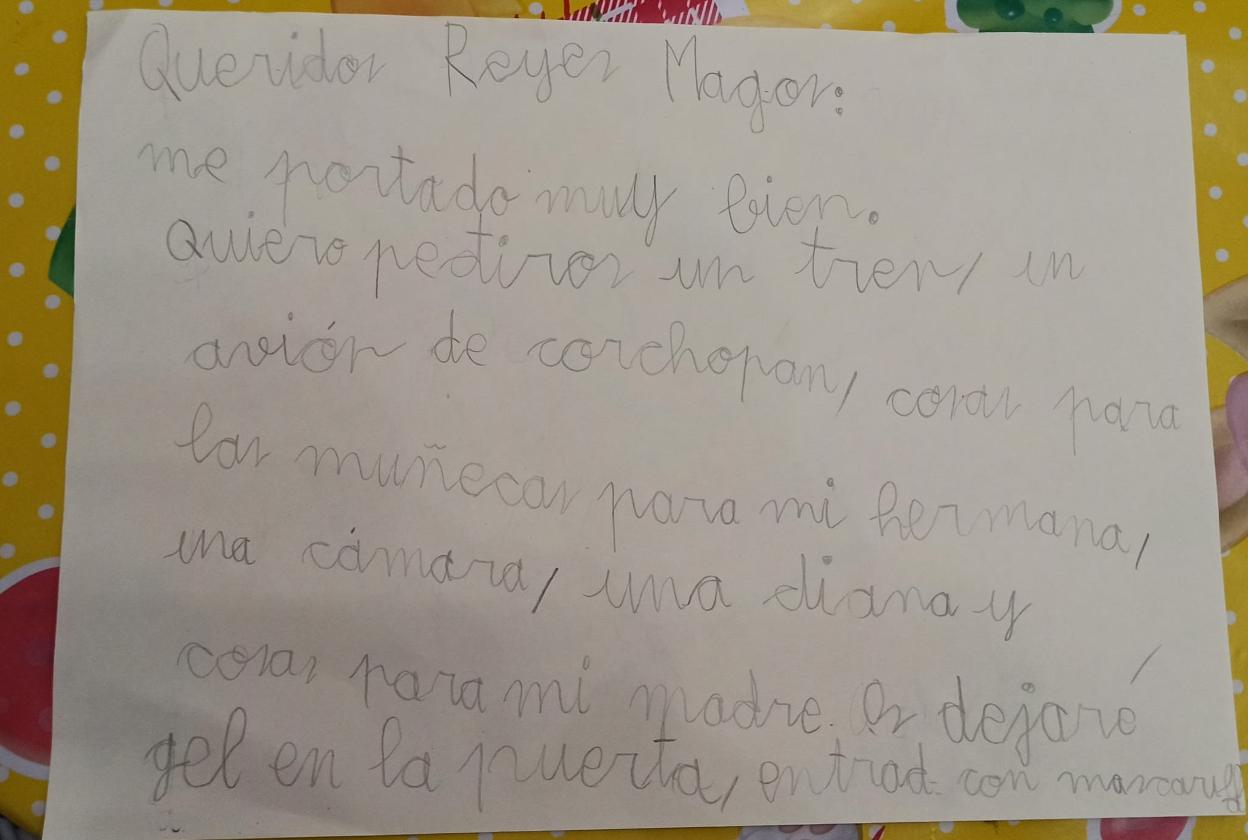 Queridos Reyes Magos:
me portado muy bien.
Quiero pediros un tren, un
avión de corchopan, cosas para
las muñecas para mi hermana,
una cámara, una diana y
cosas para mi madre. Os dejaré
gel en la puerta, entrad con